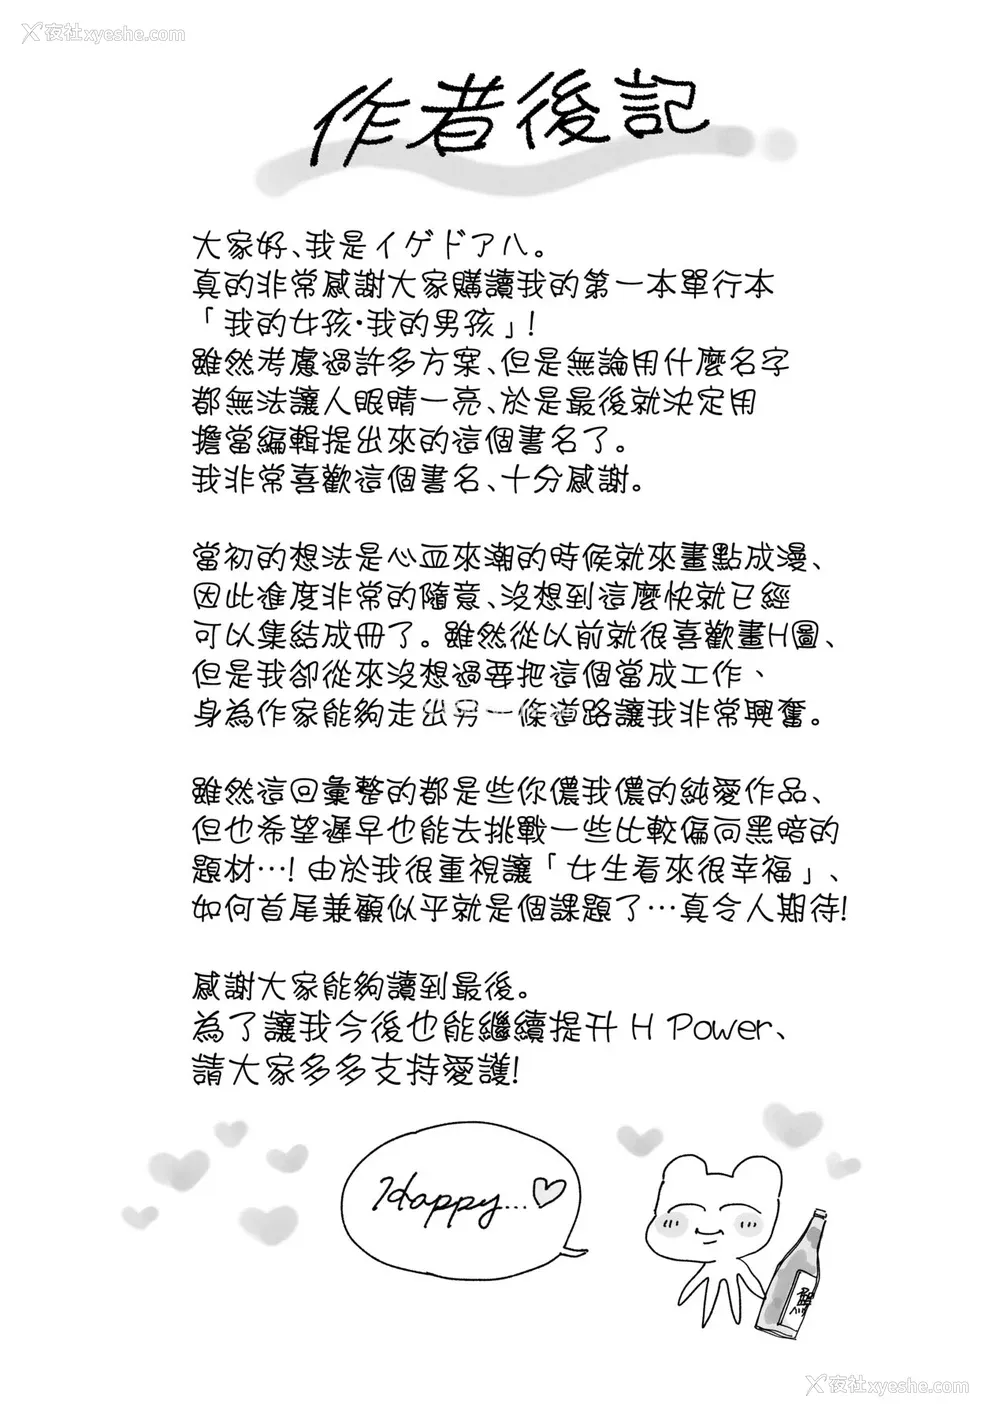 夜社xyeshe.com
作者後記
大家好、我是イゲドアハ。
真的非常感謝大家購讀我的第一本單行本
「我的女孩·我的男孩」!
雖然考慮過許多方案、但是無論用什麼名字
都無法讓人眼睛一亮、於是最後就決定用
擔當編輯提出來的這個書名了。
我非常喜歡這個書名、十分感謝。
當初的想法是心血來潮的時候就來畫點成漫、
因此進度非常的隨意、沒想到這麼快就已經
可以集結成冊了。雖然從以前就很喜歡畫H圖、
但是我卻從來沒想過要把這個當成工作、
身為作家能夠走出另一條道路讓我非常興奮。
雖然這回彙整的都是些你儂我儂的純愛作品、
但也希望遲早也能去挑戰一些比較偏向黑暗的
題材…! 由於我很重視讓「女生看來很幸福」、
如何首尾兼顧似乎就是個課題了…真令人期待!
感謝大家能夠讀到最後。
為了讓我今後也能繼續提升 H Power、
請大家多多支持愛護!
Happy...♡
夜社xyeshe.com